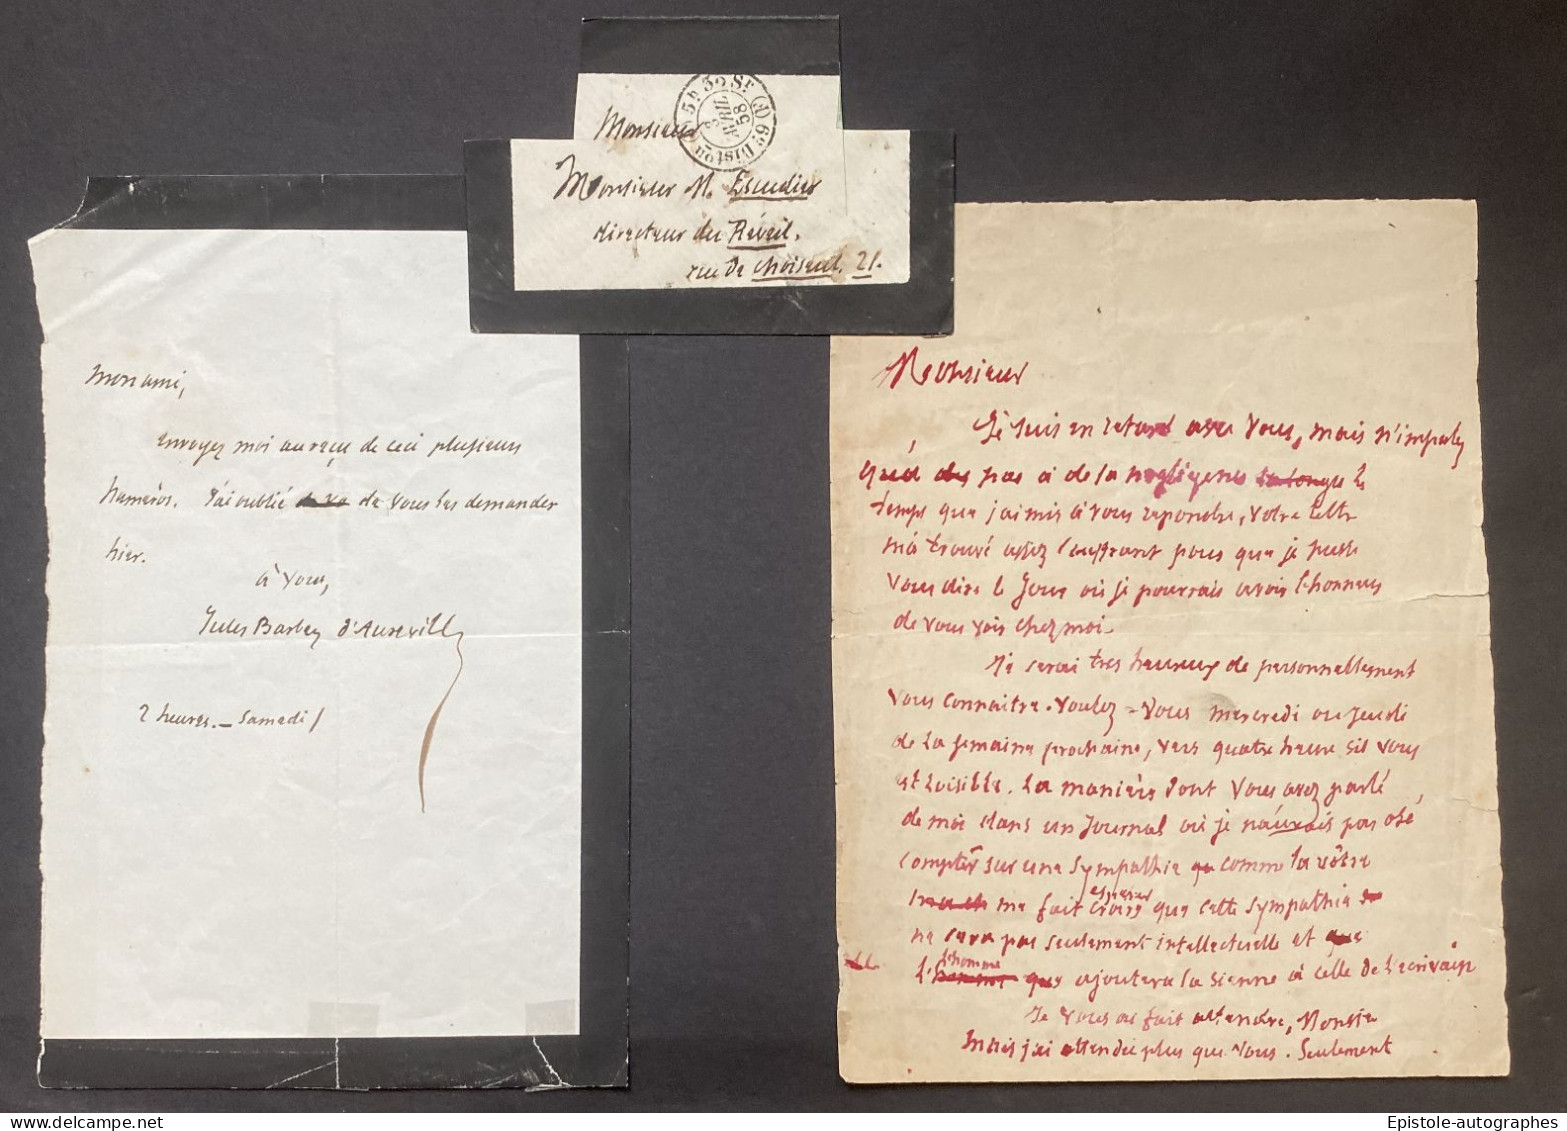 5h 5e Sr (J) 6e Diston
8
AVRIL
58
Monsieur
Monsieur M. Escudier
directeur du Réveil.
rue de Choiseul. 21.
Mon ami,
envoyez moi au reçu de ceci plusieurs
numéros. J'ai oublié de vous les demander
hier.
à vous,
Jules Barbey d'Aurevilly
2 heures. – Samedi /
Monsieur
Je suis en retard avec vous, mais n'imputez
pas à de la négligence le
temps que j'ai mis à vous repondre, votre lettre
m'a trouvé assez souffrant pour que je pusse
vous dire le jour où je pourrais avoir l'honneur
de vous voir chez moi.
Je serai très heureux de personnellement
vous connaitre. Voulez-vous mercredi ou jeudi
de la semaine prochaine, vers quatre heure s'il vous
est loisible. La manière dont vous avez parlé
de moi dans un journal où je n'aurais pas osé
compter sur une sympathie comme la vôtre
me fait espérer que cette sympathie
ne sera pas seulement intellectuelle et
l'homme ajoutera la sienne à celle de l'écrivain
Je vous ai fait attendre, Monsieur
mais j'ai attendu plus que vous. Seulement
Epistole-autographes